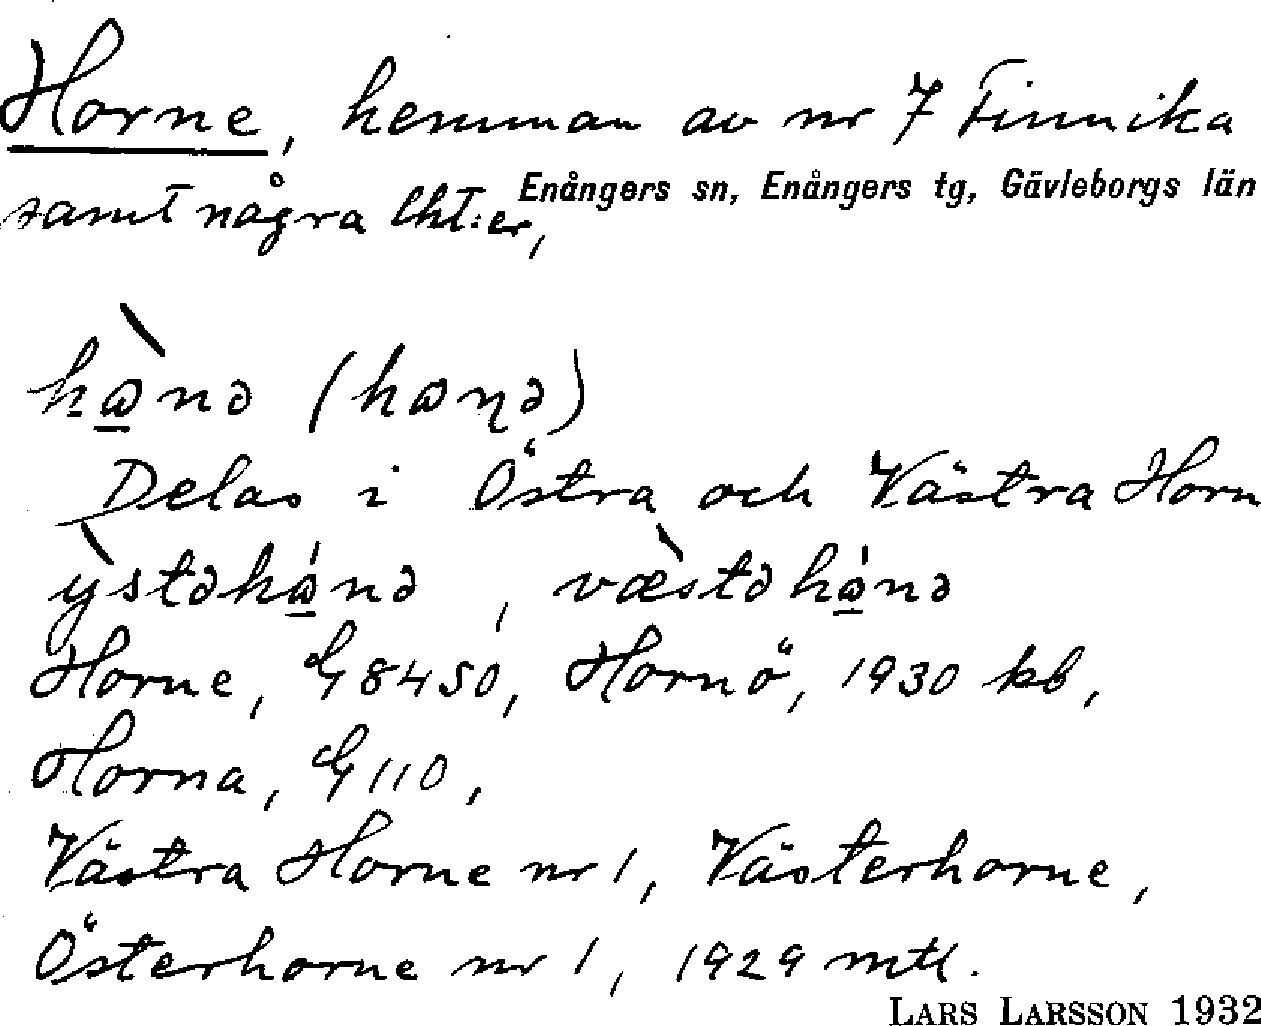 Horne, hemman av nr 7 Finnika
samt några lht:er,
Enångers sn, Enångers tg, Gävleborgs län
hànə (hanə)
Delas i Östra och Västra Horn
ỳstəhánə, væ̀stəhánə
Horne, G8450, Hornö, 1930 kb,
Horna, G110,
Västra Horne nr 1, Västerhorne,
Österhorne nr 1, 1929 mtl.
LARS LARSSON 1932